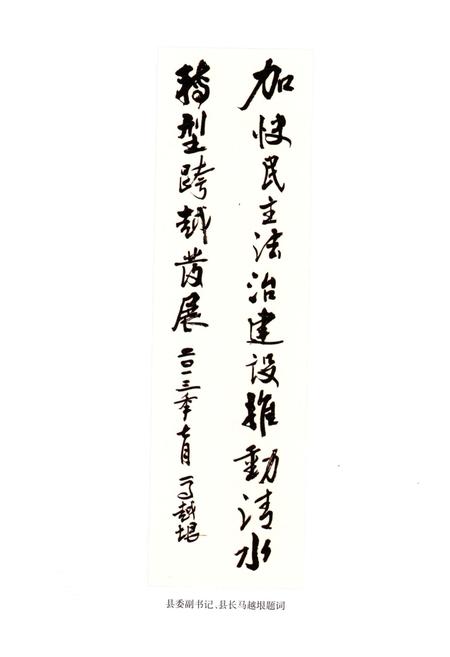 加快民主法治建设推動清水
轉型跨越發展 二〇一三年七月 马越垠
县委副书记、县长马越垠题词